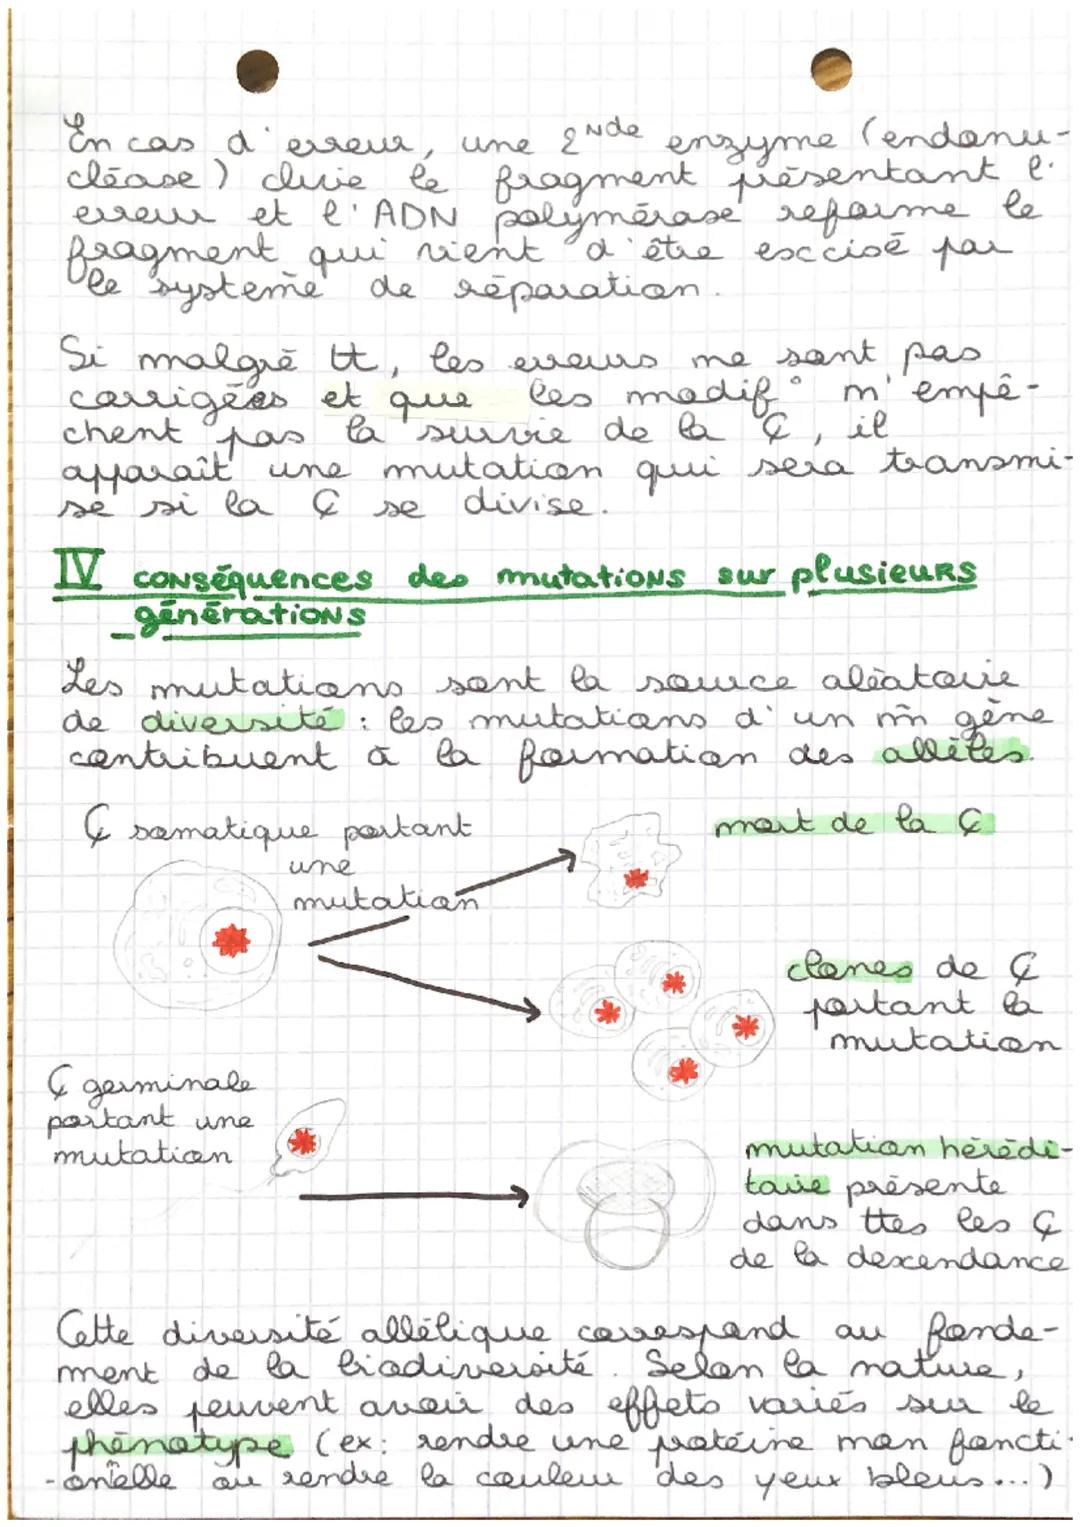 En cas d'erreur, une 2Nde enzyme (endonu-
cléase) clive le fragment présentant l'
erreur et l'ADN polymérase reforme le
fragment qui vient d'être exccisé par
le système de réparation.
Si malgré tt, les erreurs ne sont pas
corrigées et que les modif° n'empê-
chent pas la survie de la ₵, il
apparaît une mutation qui sera transmi-
se si la ₵ se divise.
IV conséquences des mutations sur plusieurs
générations
Les mutations sont la source aléatoire
de diversité : les mutations d'un mm gène
contribuent à la formation des allèles.
₵ somatique portant
une
mutation
mort de la ₵
clones de ₵
portant la
mutation
₵ germinale
portant une
mutation
mutation hérédi-
taire présente
dans ttes les ₵
de la descendance
Cette diversité allélique correspond au fonde-
ment de la biodiversité. Selon la nature,
elles peuvent avoir des effets variés sur le
phénotype (ex: rendre une protéine non foncti-
-onelle ou rendre la couleur des yeux bleus...)